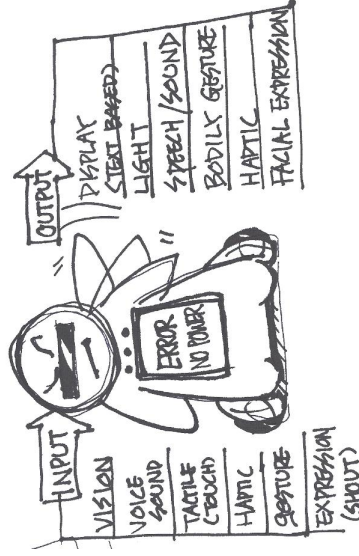 INPUT
VISION
VOICE
SOUND
TACTILE
(TOUCH)
HAPTIC
GESTURE
EXPRESSION
(SHOUT)
ERROR
NO POWER
OUTPUT
DISPLAY
(TEXT BASED)
LIGHT
SPEECH/SOUND
BODILY GESTURE
HAPTIC
FACIAL EXPRESSION